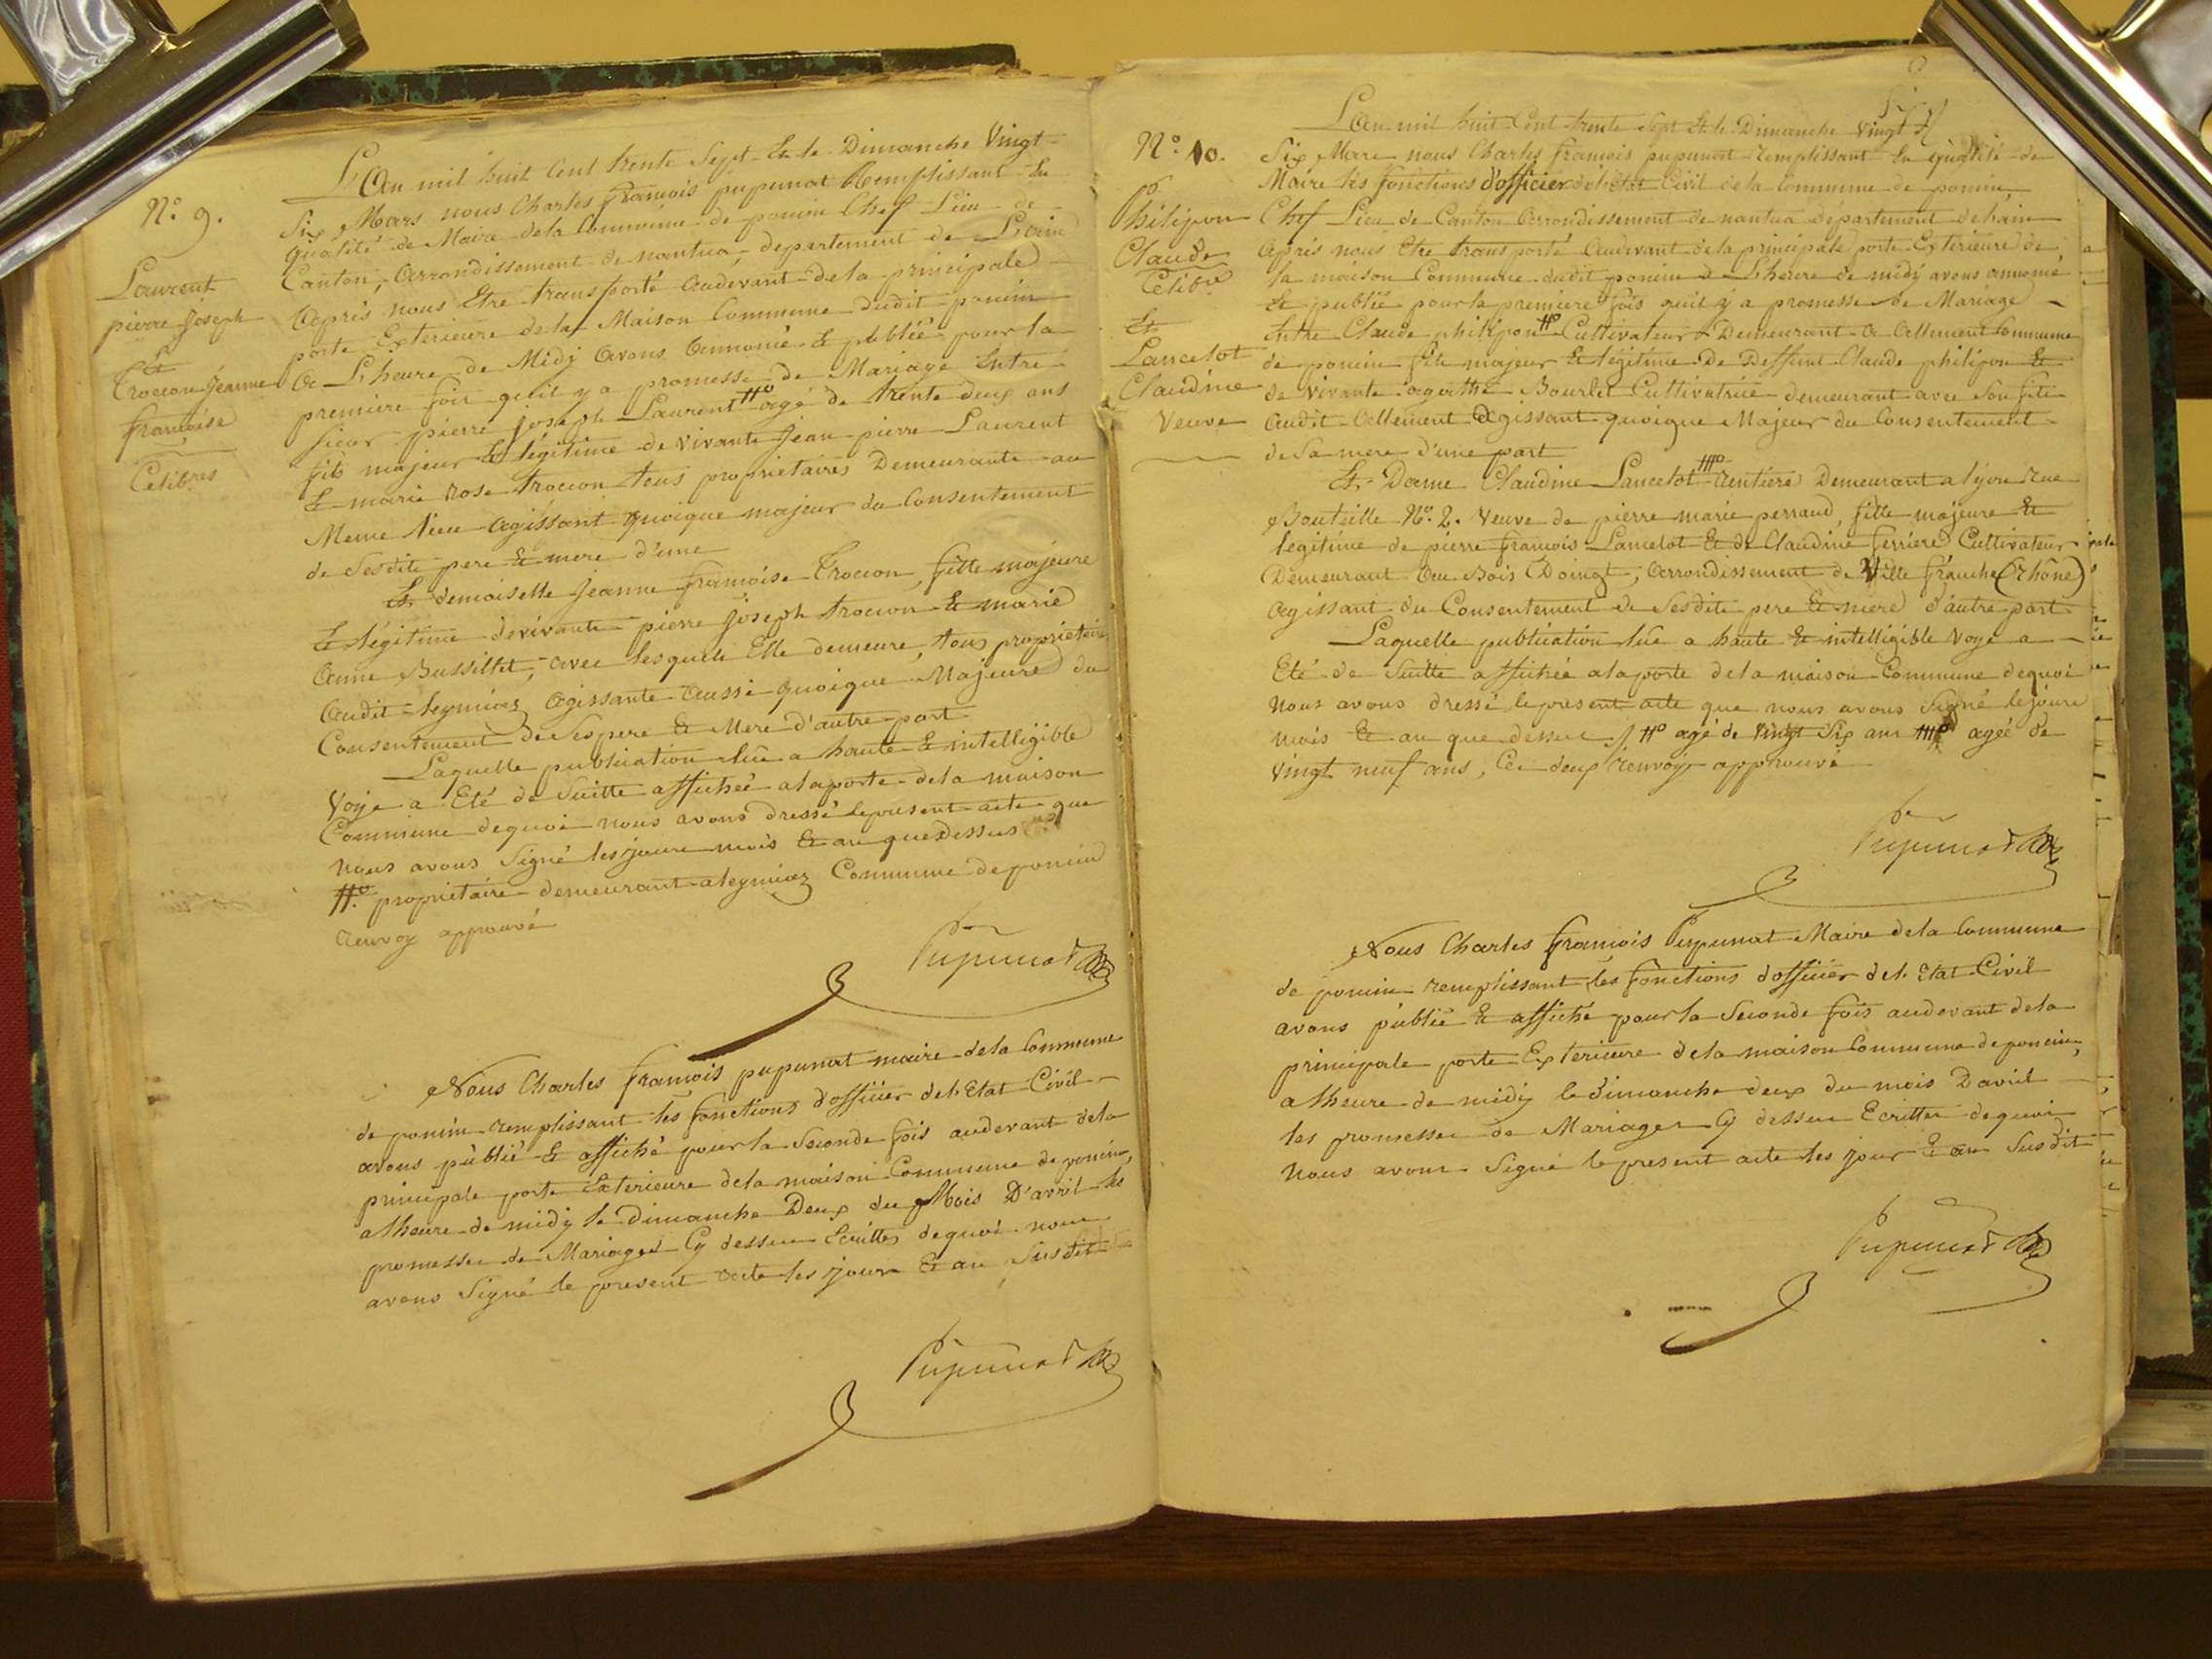 N.o 9.
Laurent
pierre Joseph
Et
Trocon Jeanne
francoise
Celibres
L'An mil huit Cent trente Sept Et le Dimanche Vingt
Six Mars nous Charles francois pupunat Remplissant la
qualité de Maire dela Commune de poncin Chef Lieu de
Canton, Arrondissement de nantua, departement de L'ain
Après nous Etre transporté Audevant dela principale
porte Exterieure dela Maison Commune dudit poncin
A L'heure de Midj Avons Annoncé Et publiée pour la
premiere fois quil y a promesse de Mariage Entre
sieur pierre joseph Laurent #o agé de trente deux ans
fils majeur Et légitime de vivants Jean pierre Laurent
Et marie rose trocon tous propriétaires Demeurants au
Meme lieu agissant quoique majeur du Consentement
de Sesdits pere Et mere d'une
Et demoiselle Jeanne francoise Trocon, fille majeure
Et légitime de vivants pierre joseph trocon Et marie
Anne Bussillet, avec lesquels Elle demeure, tous proprietaires
Audit leymiaz agissante Aussi quoique Majeure du
Consentement de Ses pere Et Mere d'autre part
Laquelle publication lûe a haute Et intelligible
Voye a Eté de Suitte affichée ala porte dela maison
Commune dequoi nous avons dressé le présent acte que
nous avons Signé les jour mois Et an que Dessus
#o proprietaire demeurant a leymiaz Commune de poncin
renvoy approuvé
Pupunat
Nous Charles francois pupunat maire dela Commune
de poncin remplissant les fonctions d'officier del'Etat Civil
avons publié Et affiché pour la Seconde fois audevant dela
principale porte Exterieure dela maison Commune de poncin,
a lheure de midy le Dimanche Deux du Mois D'avril les
promesses de Mariages Cy dessus Ecrittes dequoi nous
avons Signé le present acte les jour Et an Susdit
Pupunat
N.o 10.
Philipon
Claude
Celibre
Et
Lancelot
Claudine
Veuve
L'An mil huit Cent trente Sept Et le Dimanche Vingt
Six Mars nous Charles francois pupunat remplissant la qualité de
Maire les fonctions d'officier del'Etat Civil dela Commune de poncin
Chef Lieu de Canton Arrondissement de nantua département de l'ain
Après nous Etre transporté Audevant dela principale porte Exterieure de
la maison Commune dudit poncin a L'heure de midy avons annoncé
Et publiée pour la premiere fois quil y a promesse de Mariage
Entre Claude philipon #o Cultivateur Demeurant a Allement Commune
de poncin fils majeur Et légitime De Deffunt Claude philipon Et
de vivante agathe Bourlet Cultivatrice demeurant avec Son fils
audit Allement Agissant quoique Majeur du Consentement
de Sa mere d'une part
Et Dame Claudine Lancelot rentiere Demeurant a lyon rue
Bouteille N.o 2. Veuve de pierre marie perraud, fille majeure Et
legitime de pierre francois Lancelot Et de Claudine ferriere Cultivateur
Demeurant Au Bois Doingt, Arrondissement de Ville franche (rhône)
agissant du Consentement de Sesdits pere Et mere d'autre part
Laquelle publication lûe a haute Et intelligible Voye a
Eté de Suitte affichée ala porte dela maison Commune dequoi
nous avons dressé le present acte que nous avons Signé le jour
mois Et an que dessus #o agé de vingt Six ans agée de
vingt neuf ans, Ces deux renvoys approuvé
Pupunat
Nous Charles francois Pupunat Maire dela Commune
de poncin remplissant les fonctions d'officier del'Etat Civil
avons publié Et affiché pour la Seconde fois audevant dela
principale porte Exterieure dela maison Commune de poncin,
a lheure de midy le Dimanche deux du mois Davril
les promesses de Mariages Cy dessus Ecrittes dequoi
nous avons Signé le present acte les jour Et an Susdit
Pupunat